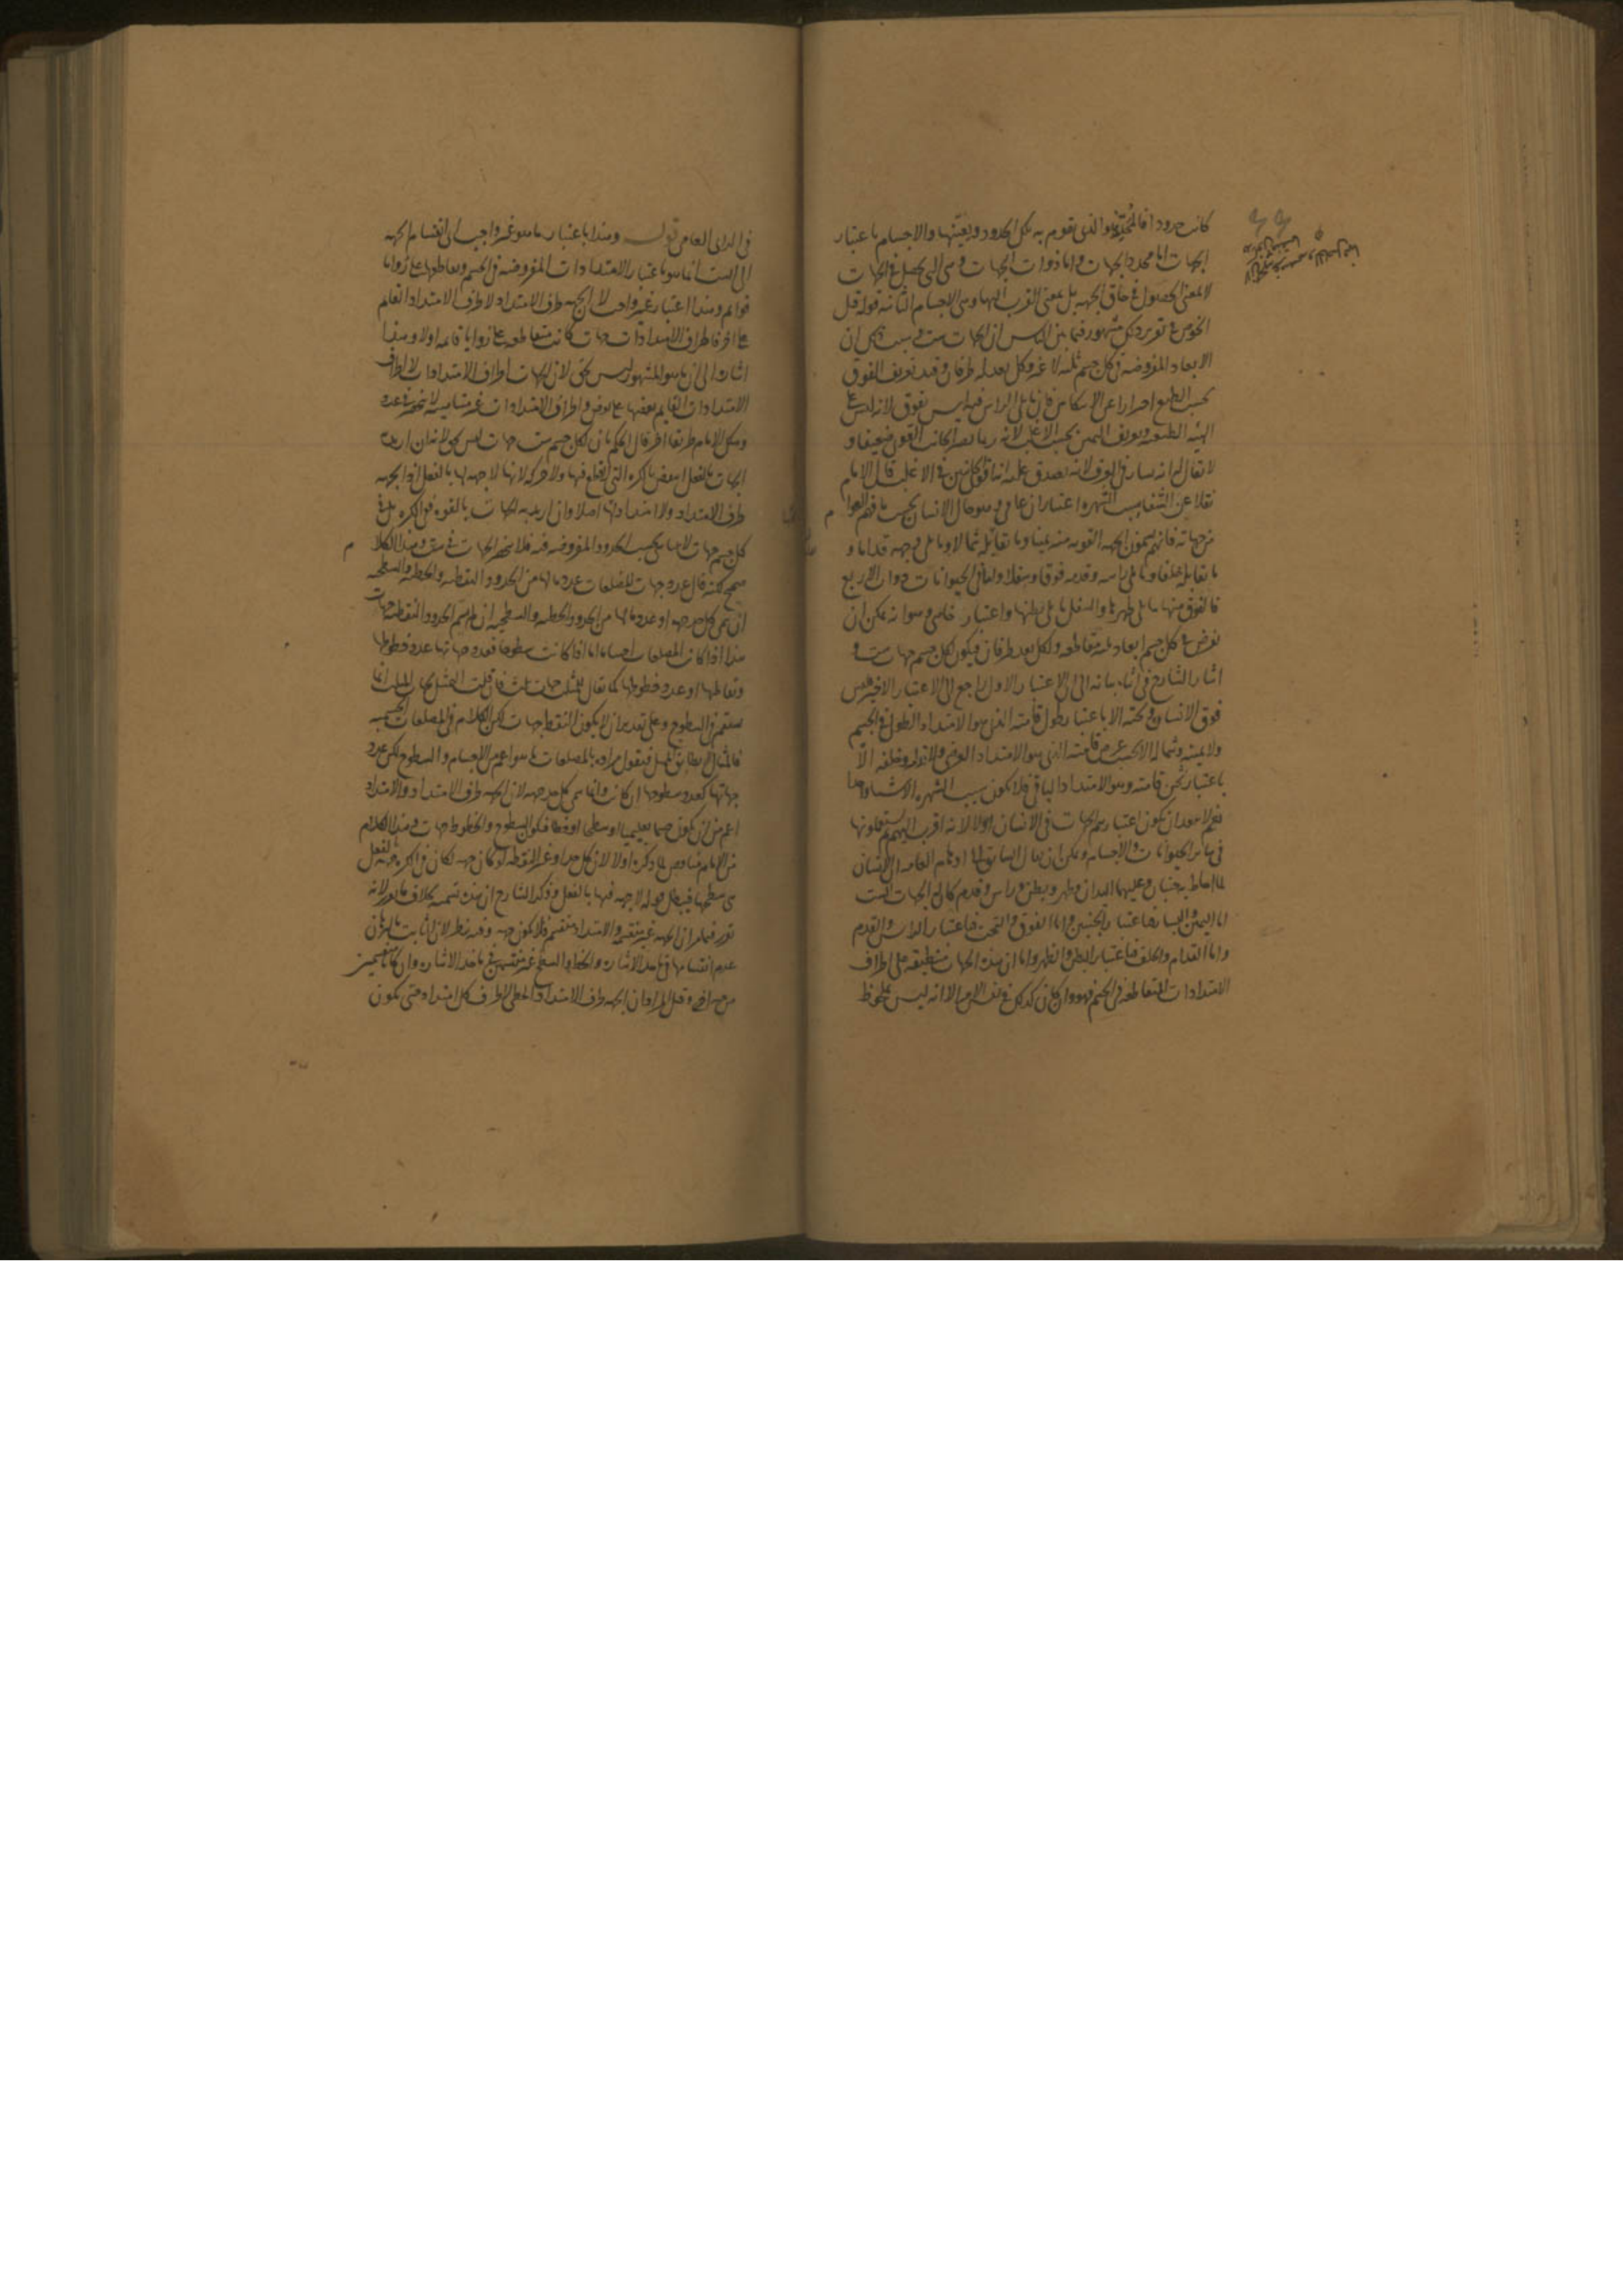 كانت حدودا فالمحدد هو الذى تقوم به تلك الحدود ويعينها والاجسام باعتبار
الجهات اما محدد الجهات واما ذوات الجهات وهى التى تحصل فى الجهات
لا بمعنى الحصول فى حاق الجهة بل بمعنى القرب اليها وهى الاجسام الثانية قوله قبل
الخوض فى تقرير ذلك مشهور فيما بين الناس ان الجهات ست وسبب ذلك ان
الابعاد المفروضة فى كل جسم ثلثة لا غير وكل بعد له طرفان وقيد تعريف الفوق
بحسب الطبع احترازا عن الانتكاس فان ما يلى الراس فيه ليس بفوق لانه ليس على
الهيئة الطبيعية وتعريف اليمين بحسب الاغلب لانه ربما يصير الجانب القوى ضعيفا و
لا يقال له انه يسار فى العرف لانه يصدق عليه انه اقوى الجانبين فى الاغلب قال الامام
نقلا عن الشفا سبب الشهرة اعتباران عامى وهو حال الانسان بحسب ما فهم العوام
من جهاته فانهم يسمون الجهة القوية منه يمينا وما تقابله شمالا وما يلى وجهه قداما و
ما يقابله خلفا وما يلى راسه وقدمه فوقا وسفلا واما فى الحيوانات ذوات الاربع
فالفوق منها ما يلى ظهرها والسفل ما يلى بطنها واعتبار خاصى وهو انه يمكن ان
يفرض فى كل جسم ابعاد ثلثة متقاطعة ولكل بعد طرفان فيكون لكل جسم جهات ست و
اشار الشارح فى اثناء بيانه الى ان الاعتبار الاول راجع الى الاعتبار الاخير فليس
فوق الانسان وتحته الا باعتبار طول قامته الذى هو الامتداد الطولى فى الجسم
ولا يمينه وشماله الا بحسب عرض قامته الذى هو الامتداد العرضى ولا قدامه وخلفه الا
باعتبار ثخن قامته وهو الامتداد الباقى فلا يكون سبب الشهرة الا شيئا واحدا
نعم لا يبعد ان يكون اعتبارهم الجهات فى الانسان اولا لانه اقرب اليهم ثم يستعملونها
فى سائر الحيوانات والاجسام ويمكن ان يقال السابق الى اوهام العامة ان الانسان
لما احاط به جنبان وعليهما اليدان وظهر وبطن وراس وقدم كان له الجهات الست
اما اليمين واليسار فباعتبار الجنبين واما الفوق والتحت فباعتبار الراس والقدم
واما القدام والخلف فباعتبار البطن والظهر واما ان هذه الجهات منطبقة على اطراف
الامتدادات المتقاطعة فى الجسم فهو وان كان كذلك فى نفس الامر الا انه ليس بملحوظ
فى الراى العامى قوله وهذا باعتبار ما هو غير واجب اى انقسام الجهة
الى الست انما هو باعتبار الامتدادات المفروضة فى الجسم وتقاطعها على زوايا
قوائم وهذا اعتبار غير واجب لان الجهة طرف الامتداد لا طرف الامتداد القائم
على اخر فاطراف الامتدادات جهات كانت متقاطعة على زوايا قائمة اولا وهذا
اشارة الى ان ما هو المشهور ليس بحق لان الجهات اطراف الامتدادات لا اطراف
الامتدادات القائم بعضها على بعض واطراف الامتدادات غير متناهية لا تنحصر فى عدد
وسلك الامام طريقا اخر قال الحكم بان لكل جسم ست جهات ليس بحق لانه ان اريد
الجهات بالفعل انتقض بالكرة التى لا قطع فيها ولا حركة لانها لا جهة لها بالفعل اذ الجهة
طرف الامتداد ولا امتداد لها اصلا وان اريد به الجهات بالقوة ففى الكرة بل فى
كل جسم جهات لا تتناهى بحسب الحدود المفروضة فيه فلا تنحصر الجهات فى ست وهذا الكلام
صحيح لكنه قال عدد جهات المضلعات عدد ما لها من الحدود النقطية والخطية والسطحية
ان سمى كل حد جهة او عدد ما لها من الحدود الخطية والسطحية ان لم تسم الحدود النقطية جهات
هذا اذا كانت المضلعات اجساما اما اذا كانت سطوحا فعدد جهاتها عدد خطوطها
ونقاطها او عدد خطوطها كما يقال للمثلث جهات ثلث فان قلت التمثيل بجهات المثلث انما
يستقيم فى السطوح وعلى تقدير ان لا يكون النقط جهات لكن الكلام فى المضلعات الجسمية
فالمثال لا يطابق الممثل فنقول مراده بالمضلعات ما هو اعم من الاجسام والسطوح لكن عدد
جهاتها كعدد سطوحها ان كانت وانما سمى كل حد جهة لان الجهة طرف الامتداد والامتداد
اعم من ان يكون جسما تعليميا او سطحا او خطا فتكون السطوح والخطوط جهات وهذا الكلام
من الامام مناقض لما ذكره اولا لان كل حد او غير النقطة لو كان جهة لكان فى الكرة جهة بالفعل
هى سطحها فيبطل قوله لا جهة فيها بالفعل وذكر الشارح ان هذه تسمية بخلاف ما مر لانه
تقرر فيما مر ان الجهة غير منقسمة والامتداد منقسم فلا يكون جهة وفيه نظر لان الثابت بالبرهان
عدم انقسامها فى ماخذ الاشارة والخط والسطح غير منقسمين فى ماخذ الاشارة وان كانا منقسمين
من جهة اخرى وقيل المراد ان الجهة طرف الامتداد الخطى لا طرف كل امتداد حتى يكون